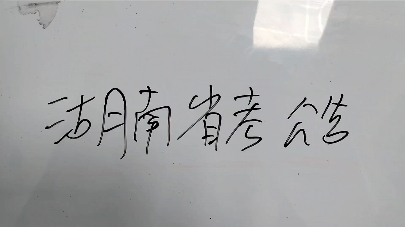 湖南省考 公告